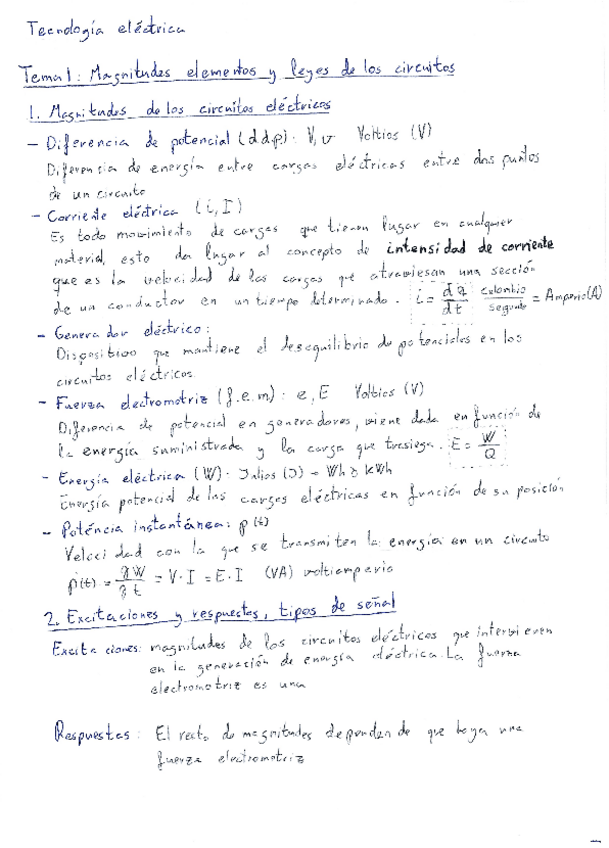 Tecnología eléctrica
Tema 1: Magnitudes elementos y leyes de los circuitos
1. Magnitudes de los circuitos eléctricos
- Diferencia de potencial (ddp): V, v Voltios (V)
Diferencia de energía entre cargas eléctricas entre dos puntos
de un circuito
- Corriente eléctrica (i, I)
Es todo movimiento de cargas que tienen lugar en cualquier
material, esto da lugar al concepto de intensidad de corriente
que es la velocidad de las cargas que atraviesan una sección
de un conductor en un tiempo determinado. i = dq/dt culombio/segundo = Amperio (A)
- Generador eléctrico:
Dispositivo que mantiene el desequilibrio de potenciales en los
circuitos eléctricos
- Fuerza electromotriz (f.e.m): e, E Voltios (V)
Diferencia de potencial en generadores, viene dada en función de
la energía suministrada y la carga que trasiega. E = W/Q
- Energía eléctrica (W): Julios (J) - Wh kWh
Energía potencial de las cargas eléctricas en función de su posición
- Poténcia instantánea: p(t)
Velocidad con la que se transmiten la energía en un circuito
p(t) = W/t = V·I = E·I (VA) voltiamperio
2. Excitaciones y respuestas, tipos de señal
Excitaciones: magnitudes de los circuitos eléctricos que intervienen
en la generación de energía eléctrica. La fuerza
electromotriz es una
Respuestas: El resto de magnitudes dependen de que haya una
fuerza electromotriz